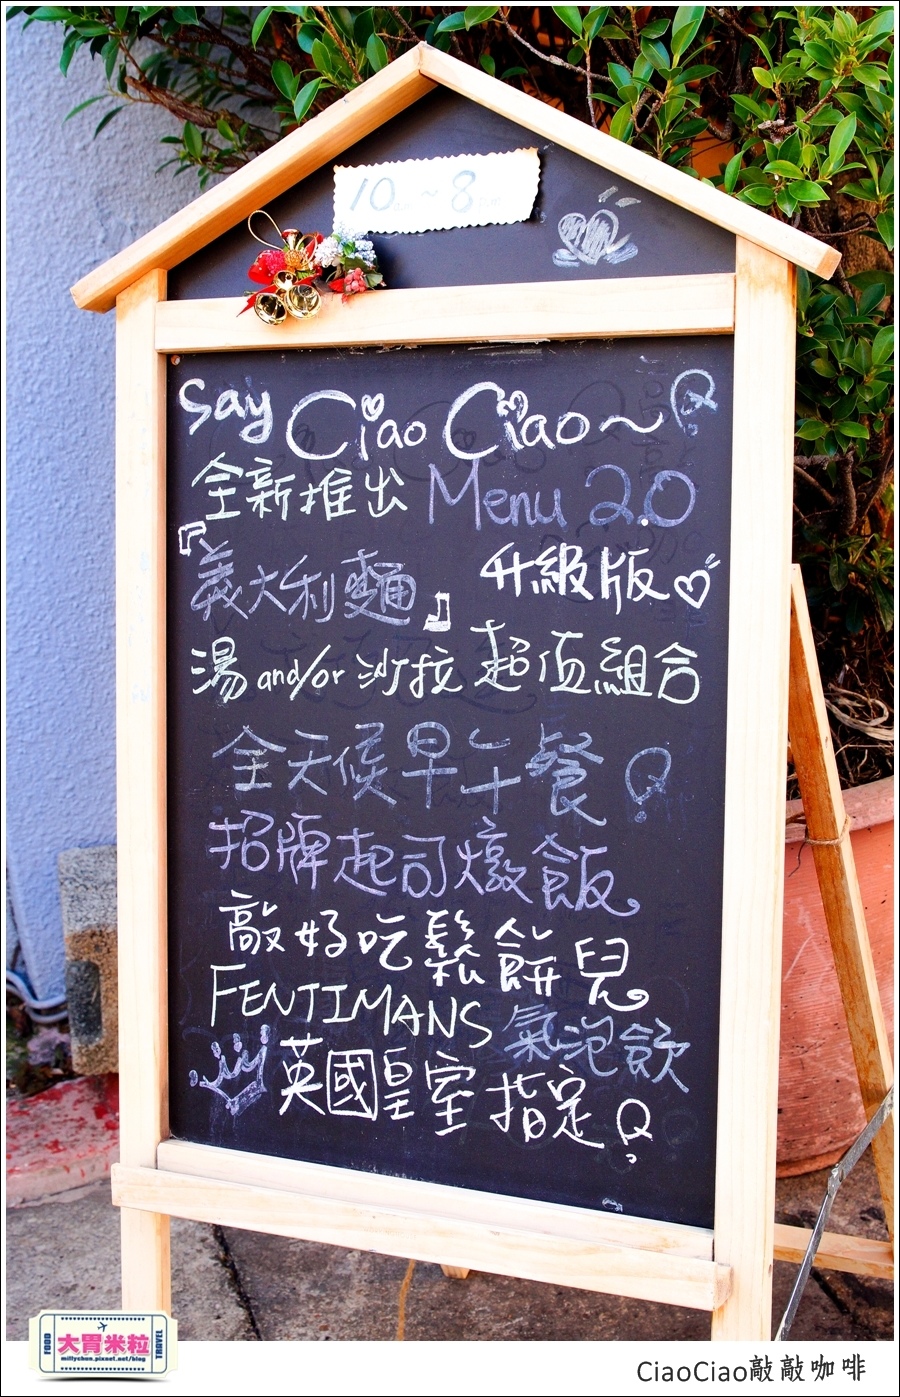 10am~8pm
Say Ciao Ciao~
全新推出 Menu 2.0
『義大利麵』 升級版
湯 and/or 沙拉 超值組合
全天候早午餐
招牌起司燉飯
敲好吃鬆餅兒
FENTIMANS 氣泡飲
英國皇室指定
FOOD
大胃米粒
millychun.pixnet.net/blog
TRAVEL
CiaoCiao敲敲咖啡